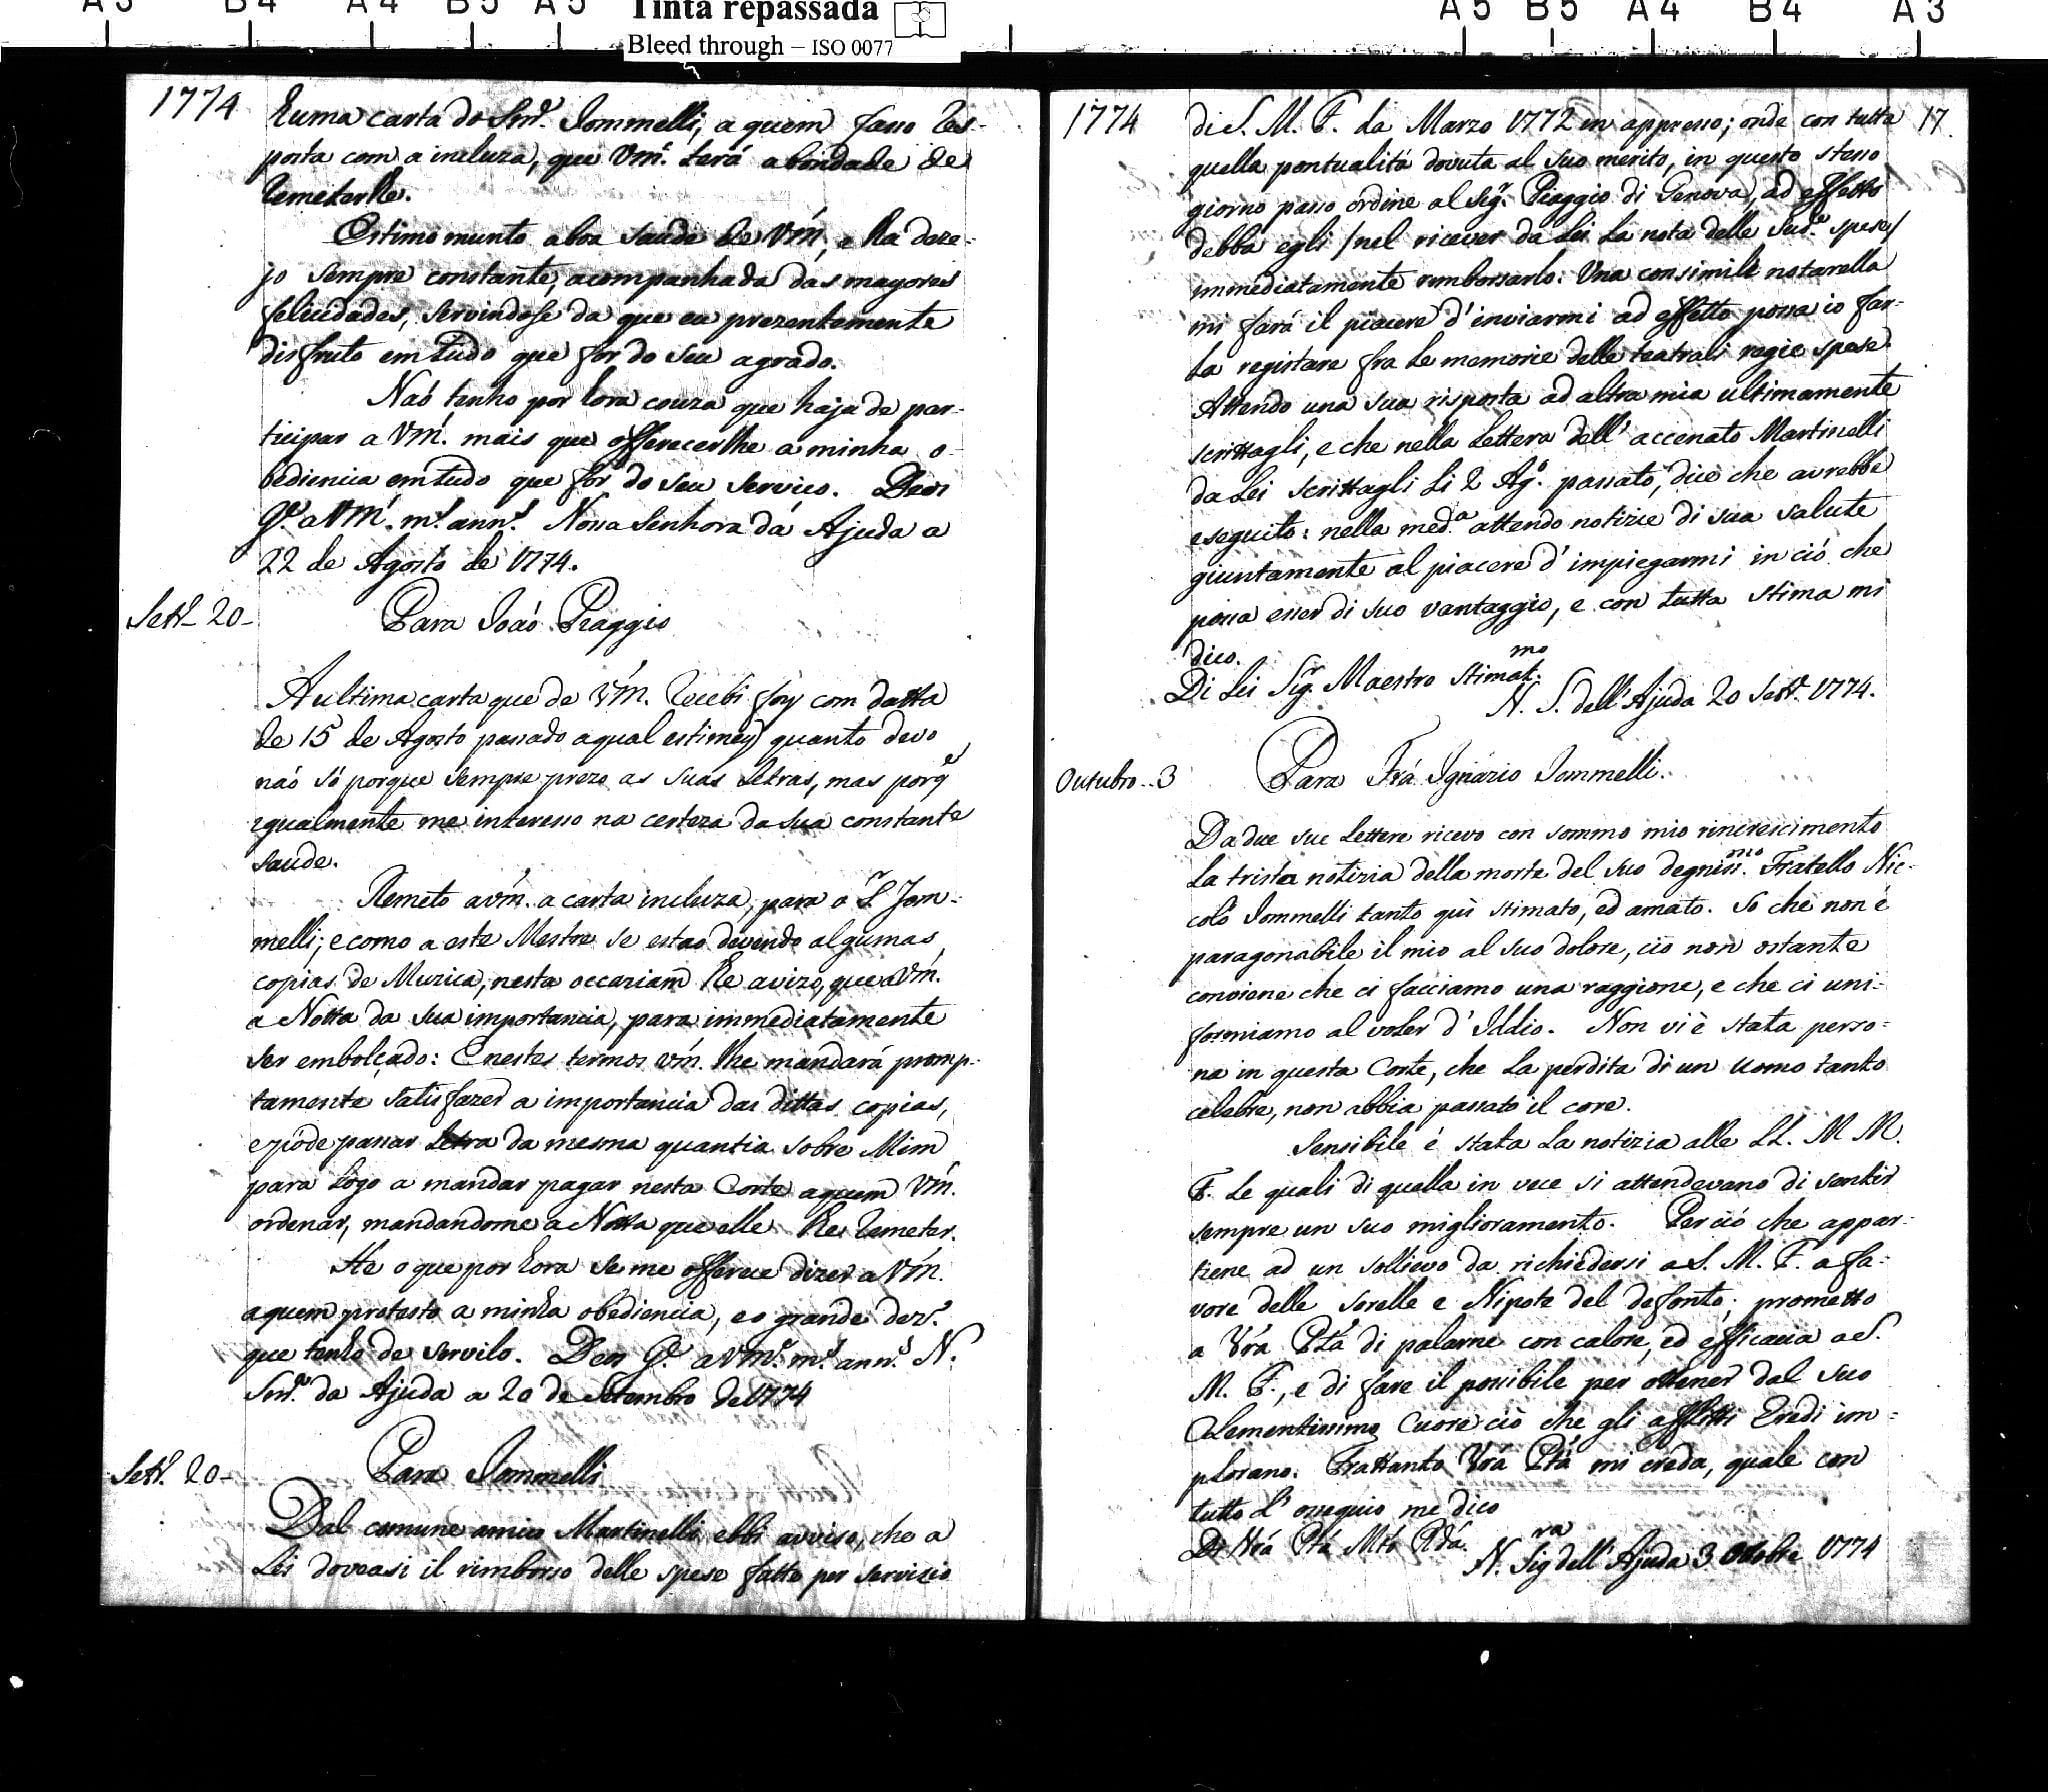 A3 B4 A4 B5 A5 Tinta repassada A5 B5 A4 B4 A3
Bleed through – ISO 0077
1774
huma carta do Snr. Jommelli, a quem fasso Res-
posta com a incluza, que Vmce. terá abondade de
Remeterlhe.
Estimo munto aboa saude de Vm, e lha deze-
jo sempre constante, acompanhada das mayores
felicidades, servindose da que eu prezentemente
disfruto em tudo que for do seu agrado.
Naó tenho por hora couza que haja de par-
ticipar a Vm. mais que offerecerlhe a minha o-
bediencia em tudo que for do seu servico. Deos
Gde. a Vm. ms. anns. Nossa Senhora dá Ajuda a
22 de Agosto de 1774.
Setbr. 20- Para Joaó Piaggio
A ultima carta que de Vm. Recebi foy com datta
de 15 de Agosto passado aqual estimey quanto devo
naó só porque sempre prezo as suas letras, mas porq̃
igualmente me interesso na certeza da sua constante
saude.
Remeto a vm. a carta incluza, para o Sr. Jom-
melli; e como a este Mestre se estao devendo algumas
copias de Muzica, nesta occaziam lhe avizo, que a Vm.
a Notta da sua importancia, para immediatamente
ser embolçado: E nestes termos vm. lhe mandará promp-
tamente satisfazer a importancia das dittas copias,
e póde passar letra da mesma quantia sobre Mim
para logo a mandar pagar nesta Corte aquem Vm.
ordenar, mandandome a Notta que elle lhe Remeter.
He o que por hora se me offerece dizer a Vm.
aquem protesto a minha obediencia, e o grande dezo.
que tenho de servilo. Deos Gde. a Vmce. ms. anns. N.
Snra. da Ajuda a 20 de Setembro de 1774
Setbr. 20- Para Jommelli
Dal comune amico Martinelli ebbi avviso, che a
Lei doveasi il rimborso delle spese fatte per servizio
1774 17.
di S. M. F. da Marzo 1772 in appresso; onde con tutta
quella pontualitá dovuta al suo merito, in questo stesso
giorno passo ordine al Sigr. Piaggio di Genova, ad effetto
debba egli /nel ricever da Lei la nota delle sude. spese/
immediatamente rimborsarlo. Una consimile notarella
mi fará il piacere d'inviarmi ad effetto possa io far-
la registare fra le memorie delle teatrali regie spese.
Attendo una sua risposta ad altra mia ultimamente
scrittagli, e che nella lettera dell' accenato Martinelli
da Lei scrittagli li 2 Ago. passato, dice che avrebbe
eseguito: nella meda. attendo notizie di sua salute
giuntamente al piacere d'impiegarmi in ció che
possa esser di suo vantaggio, e con tutta stima mi
dico.
Di Lei Sigr. Maestro Stimatmo.
N. S. dell' Ajuda 20 Setbr. 1774.
Outubro..3 Para Frá Ignazio Jommelli.
Da due sue lettere ricevo con sommo mio rincrescimento
la trista notizia della morte del suo degnissmo. Fratello Nic-
coló Jommelli tanto qui stimato, ed amato. So che non é
paragonabile il mio al suo dolore, ció non ostante
conviene che ci facciamo una raggione, e che ci uni-
formiamo al voler d' Iddio. Non vi è stata perso-
na in questa Corte, che la perdita di un uomo tanto
celebre, non abbia passato il core.
Sensibile é stata la notizia alle LL. M M.
F. le quali di quella in vece si attendevano di sentir
sempre un suo miglioramento. Per ció che appar-
tiene ad un sollievo da richiedersi a S. M. F. a fa-
vore delle sorelle e Nipote del defonto; prometto
a Vrá Ptá di palarne con calore, ed efficacia a S.
M. F., e di fare il possibile per ottener dal suo
Clementissimo Cuore ció che gli afflitti Eredi im-
plorano. Frattanto Vrá Ptá mi creda, quale con
tutto l' ossequio me dico
Di Vrá Ptá Mto Rdá.
N. Sigra dell' Ajuda 3 Ottobre 1774